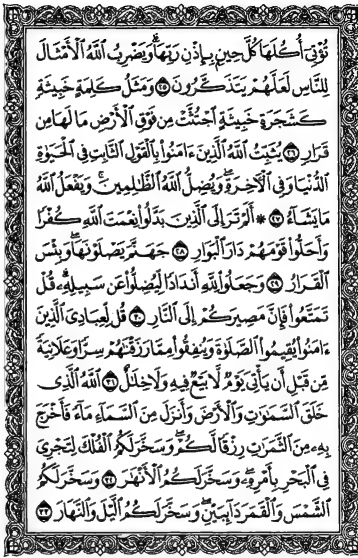 تُؤْتِىٓ أُكُلَهَا كُلَّ حِينٍۭ بِإِذْنِ رَبِّهَا ۗ وَيَضْرِبُ ٱللَّهُ ٱلْأَمْثَالَ
لِلنَّاسِ لَعَلَّهُمْ يَتَذَكَّرُونَ ٢٥ وَمَثَلُ كَلِمَةٍ خَبِيثَةٍ
كَشَجَرَةٍ خَبِيثَةٍ ٱجْتُثَّتْ مِن فَوْقِ ٱلْأَرْضِ مَا لَهَا مِن
قَرَارٍ ٢٦ يُثَبِّتُ ٱللَّهُ ٱلَّذِينَ ءَامَنُوا۟ بِٱلْقَوْلِ ٱلثَّابِتِ فِى ٱلْحَيَوٰةِ
ٱلدُّنْيَا وَفِى ٱلْءَاخِرَةِ ۖ وَيُضِلُّ ٱللَّهُ ٱلظَّـٰلِمِينَ ۚ وَيَفْعَلُ ٱللَّهُ
مَا يَشَآءُ ٢٧ ۞ أَلَمْ تَرَ إِلَى ٱلَّذِينَ بَدَّلُوا۟ نِعْمَتَ ٱللَّهِ كُفْرًا
وَأَحَلُّوا۟ قَوْمَهُمْ دَارَ ٱلْبَوَارِ ٢٨ جَهَنَّمَ يَصْلَوْنَهَا ۖ وَبِئْسَ
ٱلْقَرَارُ ٢٩ وَجَعَلُوا۟ لِلَّهِ أَندَادًا لِّيُضِلُّوا۟ عَن سَبِيلِهِۦ ۗ قُلْ
تَمَتَّعُوا۟ فَإِنَّ مَصِيرَكُمْ إِلَى ٱلنَّارِ ٣٠ قُل لِّعِبَادِىَ ٱلَّذِينَ
ءَامَنُوا۟ يُقِيمُوا۟ ٱلصَّلَوٰةَ وَيُنفِقُوا۟ مِمَّا رَزَقْنَـٰهُمْ سِرًّا وَعَلَانِيَةً
مِّن قَبْلِ أَن يَأْتِىَ يَوْمٌ لَّا بَيْعٌ فِيهِ وَلَا خِلَـٰلٌ ٣١ ٱللَّهُ ٱلَّذِى
خَلَقَ ٱلسَّمَـٰوَٰتِ وَٱلْأَرْضَ وَأَنزَلَ مِنَ ٱلسَّمَآءِ مَآءً فَأَخْرَجَ
بِهِۦ مِنَ ٱلثَّمَرَٰتِ رِزْقًا لَّكُمْ ۖ وَسَخَّرَ لَكُمُ ٱلْفُلْكَ لِتَجْرِىَ
فِى ٱلْبَحْرِ بِأَمْرِهِۦ ۖ وَسَخَّرَ لَكُمُ ٱلْأَنْهَـٰرَ ٣٢ وَسَخَّرَ لَكُمُ
ٱلشَّمْسَ وَٱلْقَمَرَ دَآئِبَيْنِ ۖ وَسَخَّرَ لَكُمُ ٱلَّيْلَ وَٱلنَّهَارَ ٣٣